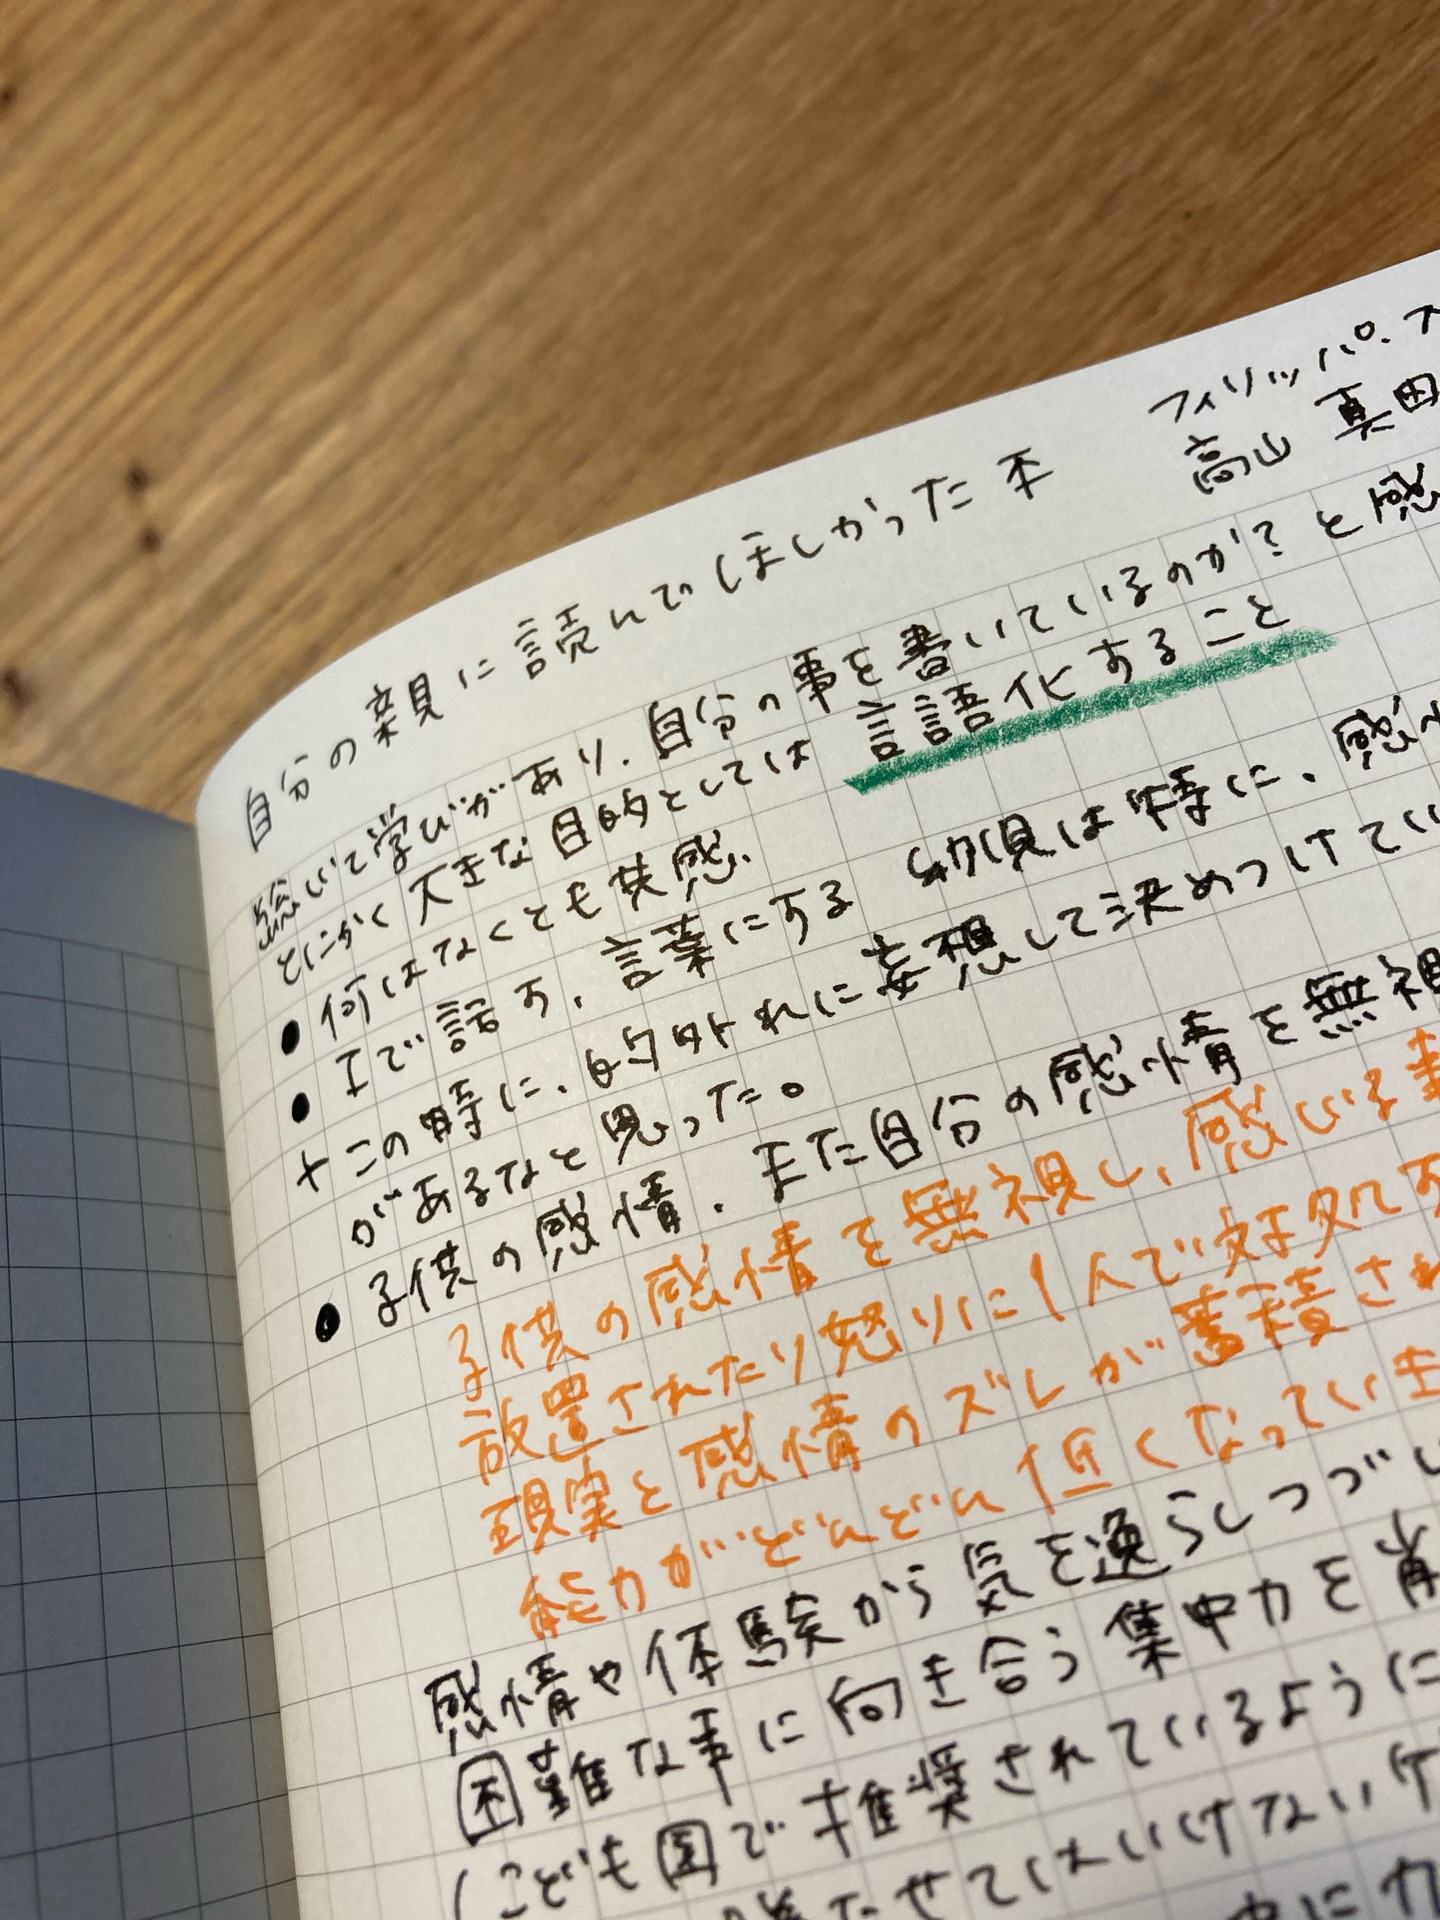 自分の親に読んでほしかった本
フィリッパ・
高山 真由
総じて学びがあり、自分の事を書いているのか？と感
とにかく大きな目的としては 言語化すること
● 何はなくとも共感.
● Iで話す、言葉にする 幼児は特に、感
+ この時に、的外れに妄想して決めつけてい
があるなと思った。
● 子供の感情、また自分の感情を無視
子供の感情を無視し、感じる事
放置されたり怒りに1人で対処す
現実と感情のズレが蓄積され
能力がどんどん低くなっていま
感情や体験から気を逸らしつづ
困難な事に向き合う集中力を
(こども園で推奨されているように
たせてはいけない
中に力